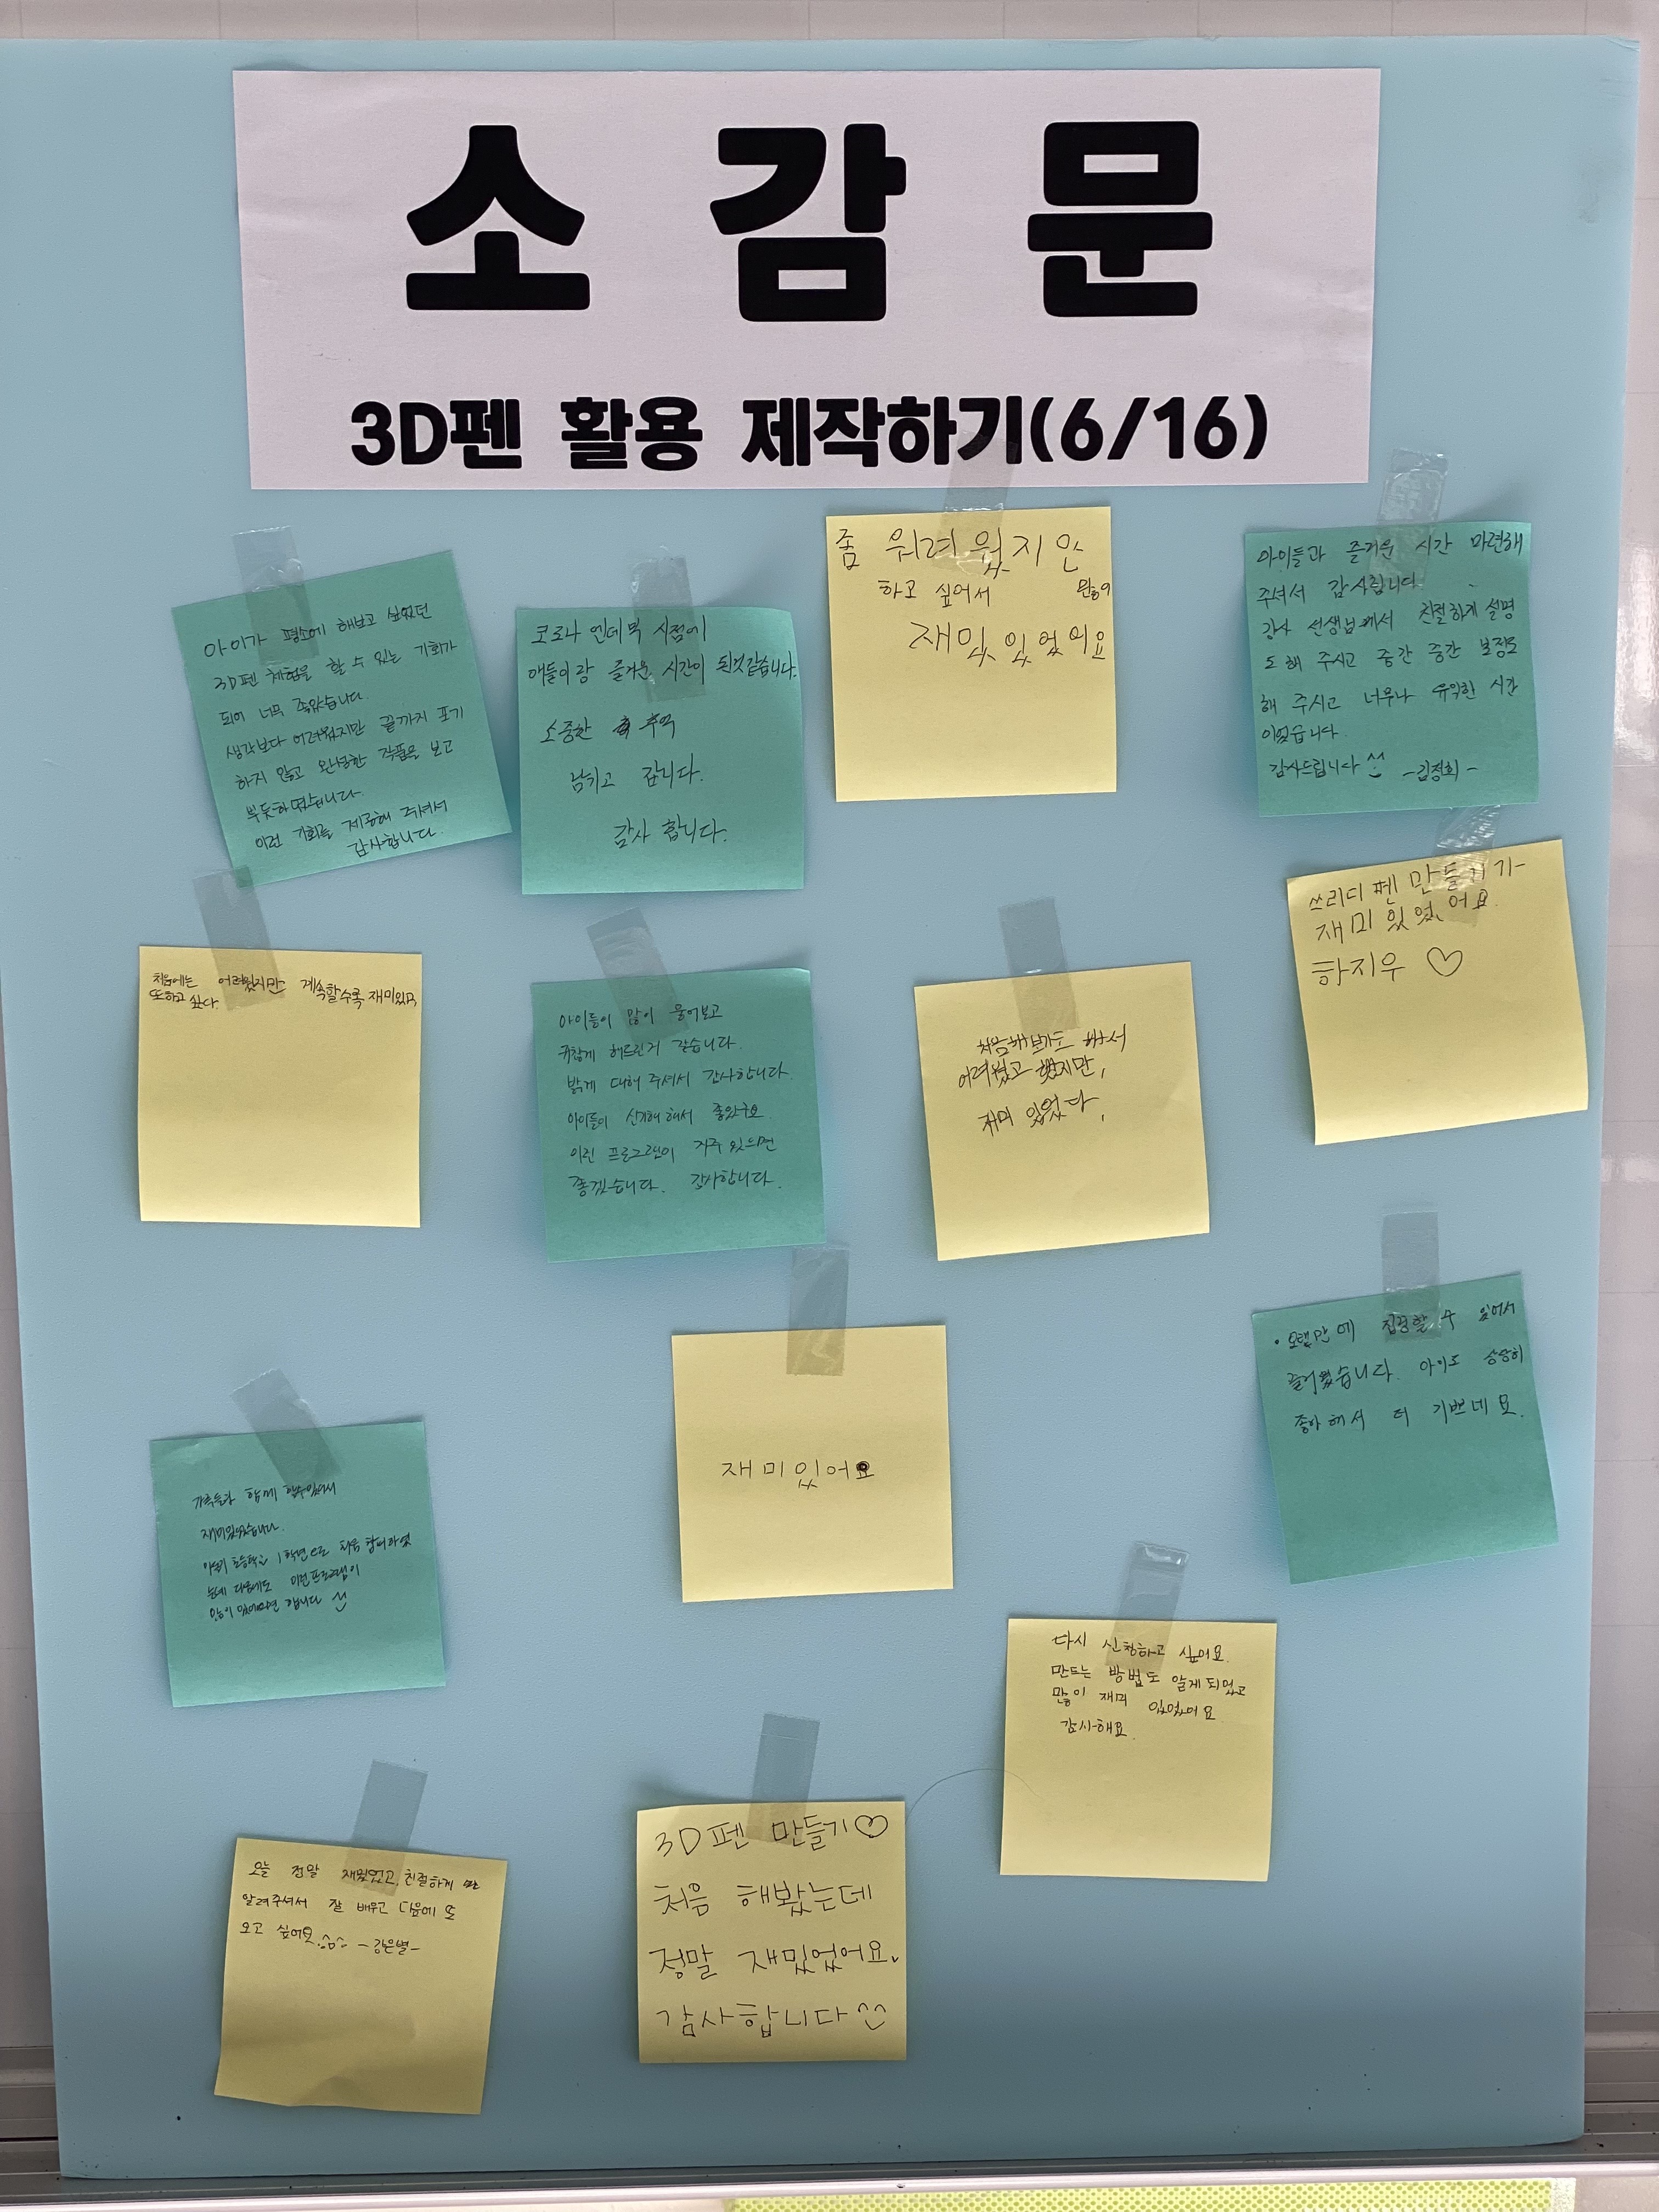 소감문
3D펜 활용 제작하기(6/16)
아이가 평소에 해보고 싶었던
3D펜 체험을 할 수 있는 기회가
되어 너무 좋았습니다.
생각보다 어려웠지만 끝까지 포기
하지 않고 완성한 작품을 보고
뿌듯하였습니다.
이런 기회를 제공해 주셔서
감사합니다.
코로나 엔데믹 시점에
애들이랑 즐거운 시간이 된것같습니다.
소중한 추억
남기고 갑니다.
감사 합니다.
좀 워려웠지안
하고 싶어서
재밌있었어요
아이들과 즐거운 시간 마련해
주셔서 감사립니다
강사 선생님께서 친절하게 설명
도 해 주시고 중간 중간 보정도
해 주시고 너무나 유익한 시간
이었습니다.
감사드립니다 ^^ -김정희-
처음에는 어려웠지만 계속할수록 재미있고
또하고 싶다.
아이들이 많이 물어보고
귀찮게 해드린거 같습니다.
밝게 대해 주셔서 감사합니다.
아이들이 신기해 해서 좋았구요
이런 프로그램이 자주 있으면
좋겠습니다. 감사합니다.
처음해보기도 해서
어려웠고 했지만,
재미 있었다,
쓰리디 펜 만들기가
재미 있었어요.
하지우 ♡
가족들과 함께 할수있어서
재미있었습니다.
아이가 초등학교 1학년으로 처음 참여하였
는데 다음에도 이런프로그램이
많이 있었으면 합니다 ^^
재미있어요
• 오랜만에 집중할 수 있어서
즐거웠습니다. 아이도 상당히
좋아해서 더 기쁘네요.
다시 신청하고 싶어요.
만드는 방법도 알게되었고
많이 재미 있었어요
감사해요.
오늘 정말 재밌었고, 친절하게
알려주셔서 잘 배우고 다음에 또
오고 싶어요. -강은별-
3D펜 만들기♡
처음 해봤는데
정말 재밌었어요.
감사합니다^^